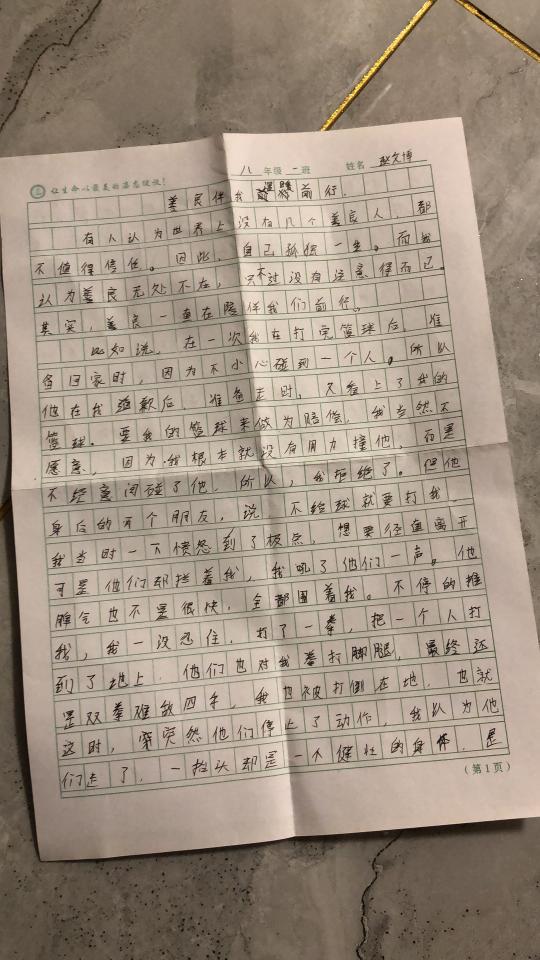 让生命以最美的姿态绽放!
八年级 二班 姓名 赵文博
善良伴我 前行.
有人认为世界上没有几个善良人,都
不值得信任。因此,自己孤独一生。而我
认为善良无处不在,只不过没有注意得而已。
其实,善良一直在陪伴我们前行。
比如说,在一次我在打完篮球后,准
备回家时,因为不小心碰到一个人。所以
他在我道歉后,准备走时,又看上了我的
篮球。要我的篮球来做为赔偿,我当然不
愿意,因为我根本就没有用力撞他,而是
不经意间碰了他,所以,我拒绝了。但他
身后的几个朋友,说,不给球就要打我.
我当时一下愤怒到了极点,想要径直离开
可是他们却拦着我,我吼了他们一声。他
脾气也不是很快,全都围着我。不停的推
我,我一没忍住,打了一拳,把一个人打
到了地上.他们也对我拳打脚腿,最终还
是双拳难敌四手,我也被打倒在地.也就
这时,突然他们停止了动作,我以为他
们走了.一抬头却是一个健壮的身体.是
(第1页)